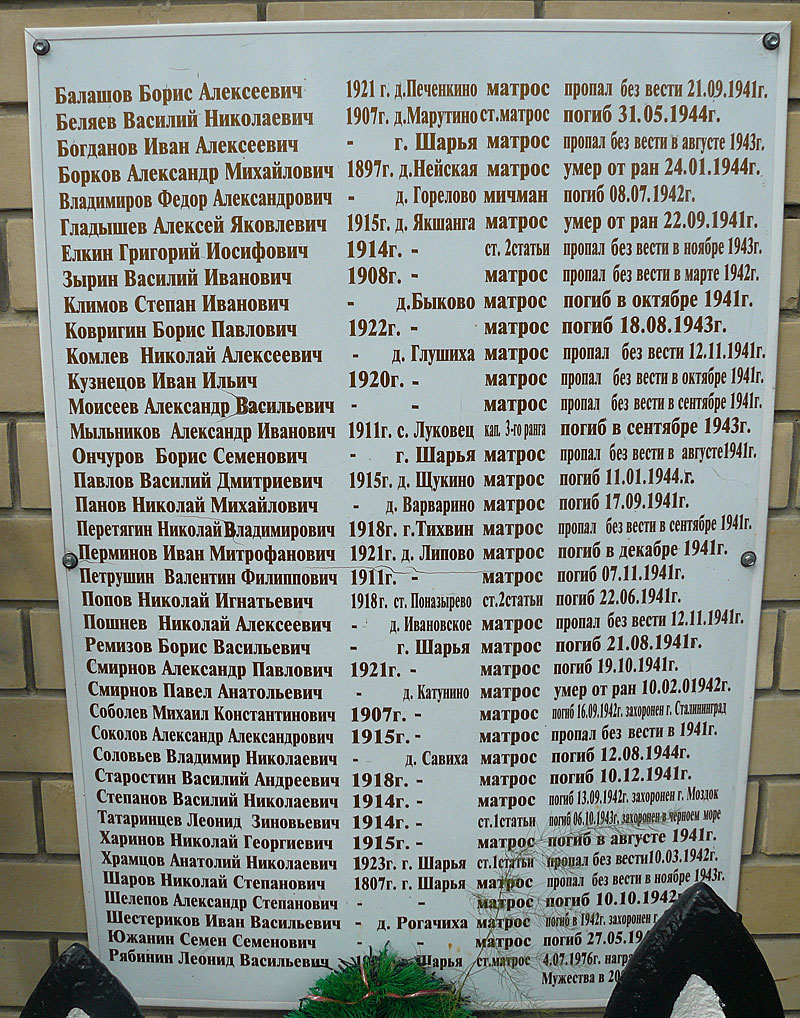 Балашов Борис Алексеевич 1921 г. д.Печенкино матрос пропал без вести 21.09.1941г.
Беляев Василий Николаевич 1907г. д.Марутино ст.матрос погиб 31.05.1944г.
Богданов Иван Алексеевич - г. Шарья матрос пропал без вести в августе 1943г.
Борков Александр Михайлович 1897г. д.Нейская матрос умер от ран 24.01.1944г.
Владимиров Федор Александрович - д. Горелово мичман погиб 08.07.1942г.
Гладышев Алексей Яковлевич 1915г. д. Якшанга матрос умер от ран 22.09.1941г.
Елкин Григорий Иосифович 1914г. - ст. 2статьи пропал без вести в ноябре 1943г.
Зырин Василий Иванович 1908г. - матрос пропал без вести в марте 1942г.
Климов Степан Иванович - д.Быково матрос погиб в октябре 1941г.
Ковригин Борис Павлович 1922г. - матрос погиб 18.08.1943г.
Комлев Николай Алексеевич - д. Глушиха матрос пропал без вести 12.11.1941г.
Кузнецов Иван Ильич 1920г. - матрос пропал без вести в октябре 1941г.
Моисеев Александр Васильевич - - матрос пропал без вести в сентябре 1941г.
Мыльников Александр Иванович 1911г. с. Луковец кап. 3-го ранга погиб в сентябре 1943г.
Ончуров Борис Семенович - г. Шарья матрос пропал без вести в августе1941г.
Павлов Василий Дмитриевич 1915г. д. Щукино матрос погиб 11.01.1944.г
Панов Николай Михайлович - д. Варварино матрос погиб 17.09.1941г.
Перетягин Николай Владимирович 1918г. г.Тихвин матрос пропал без вести в сентябре 1941г.
Перминов Иван Митрофанович 1921г. д. Липово матрос погиб в декабре 1941г.
Петрушин Валентин Филиппович 1911г. - матрос погиб 07.11.1941г.
Попов Николай Игнатьевич 1918г. ст. Поназырево ст.2статьи погиб 22.06.1941г.
Пошнев Николай Алексеевич - д. Ивановское матрос пропал без вести 12.11.1941г
Ремизов Борис Васильевич - г. Шарья матрос погиб 21.08.1941г.
Смирнов Александр Павлович 1921г. - матрос погиб 19.10.1941г.
Смирнов Павел Анатольевич - д. Катунино матрос умер от ран 10.02.01942г.
Соболев Михаил Константинович 1907г. - матрос погиб 16.09.1942г. захоронен г. Сталининград
Соколов Александр Александрович 1915г. - матрос пропал без вести в 1941г.
Соловьев Владимир Николаевич - д. Савиха матрос погиб 12.08.1944г.
Старостин Василий Андреевич 1918г. - матрос погиб 10.12.1941г.
Степанов Василий Николаевич 1914г. - матрос погиб 13.09.1942г. захоронен г. Моздок
Татаринцев Леонид Зиновьевич 1914г. - ст.1статьи погиб 06.10.1943г. захоронен в черноем море
Харинов Николай Георгиевич 1915г. - матрос погиб в августе 1941г.
Храмцов Анатолий Николаевич 1923г. г. Шарья ст.1статьи пропал без вести10.03.1942г.
Шаров Николай Степанович 1807г. г. Шарья матрос пропал без вести в ноябре 1943г.
Шелепов Александр Степанович - - матрос погиб 10.10.1942г
Шестериков Иван Васильевич - д. Рогачиха матрос погиб в 1942г. захоронен г
Южанин Семен Семенович - - матрос погиб 27.05.
Рябинин Леонид Васильевич Шарья ст.матрос 4.07.1976г.
Мужества в